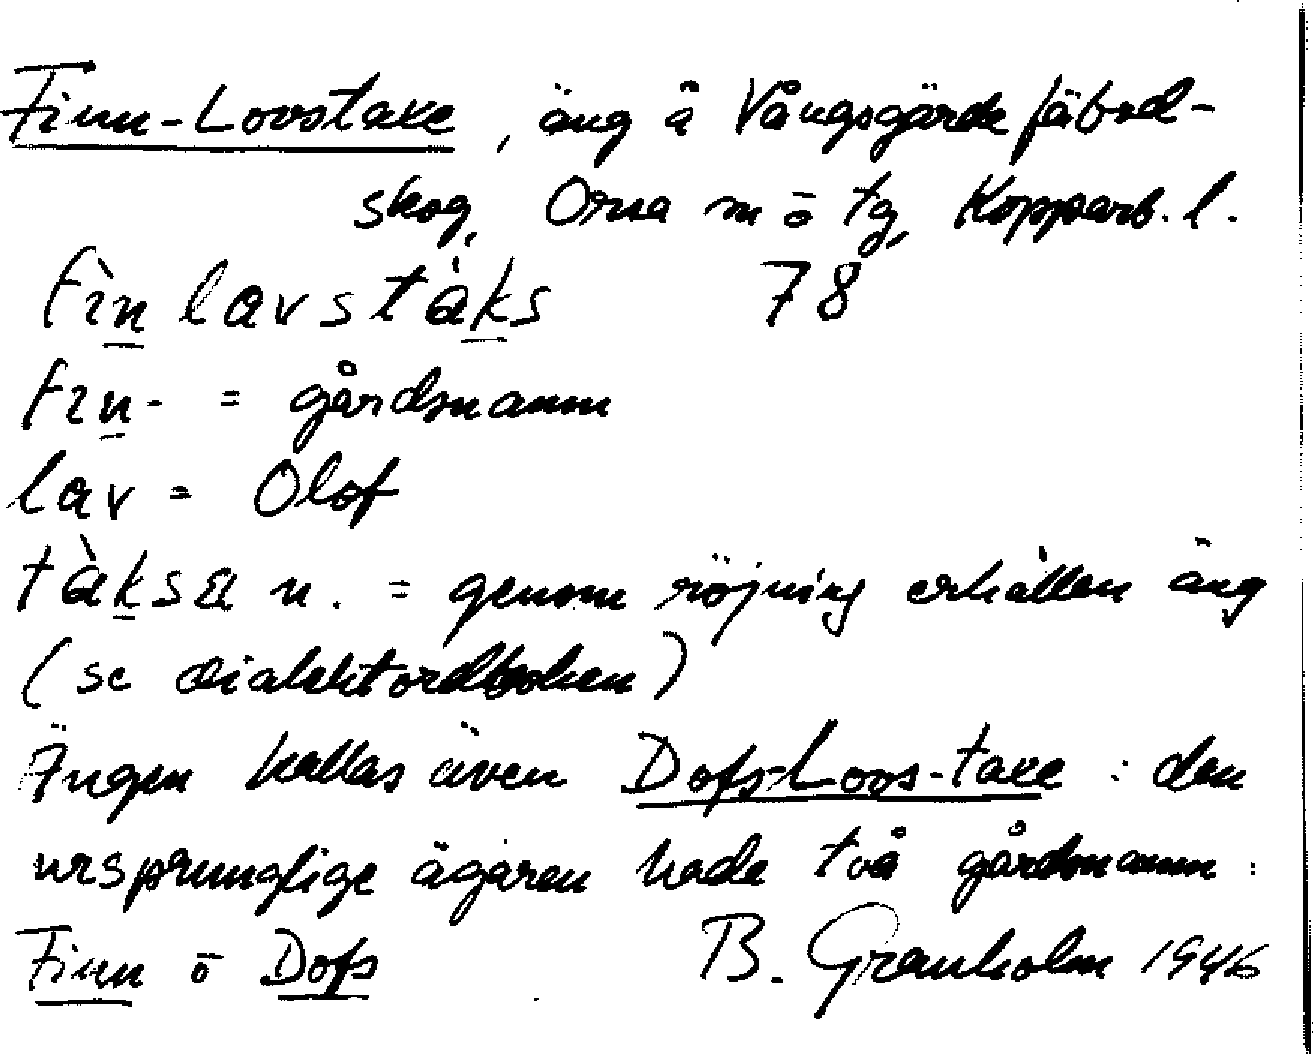 Finn-Lovstake, äng å Vångsgärde fäbod-
skog, Orsa m ō tg, Kopparb. l.
fìn lavstàks 78
fin- = gårdsnamn
lav = Olof
tàksa n. = genom röjning erhållen äng
(se dialektordboken)
Ängen kallas även Dofs-Loos-take : den
ursprunglige ägaren hade två gårdsnamn :
Finn ō Dofs B. Granholm 1946